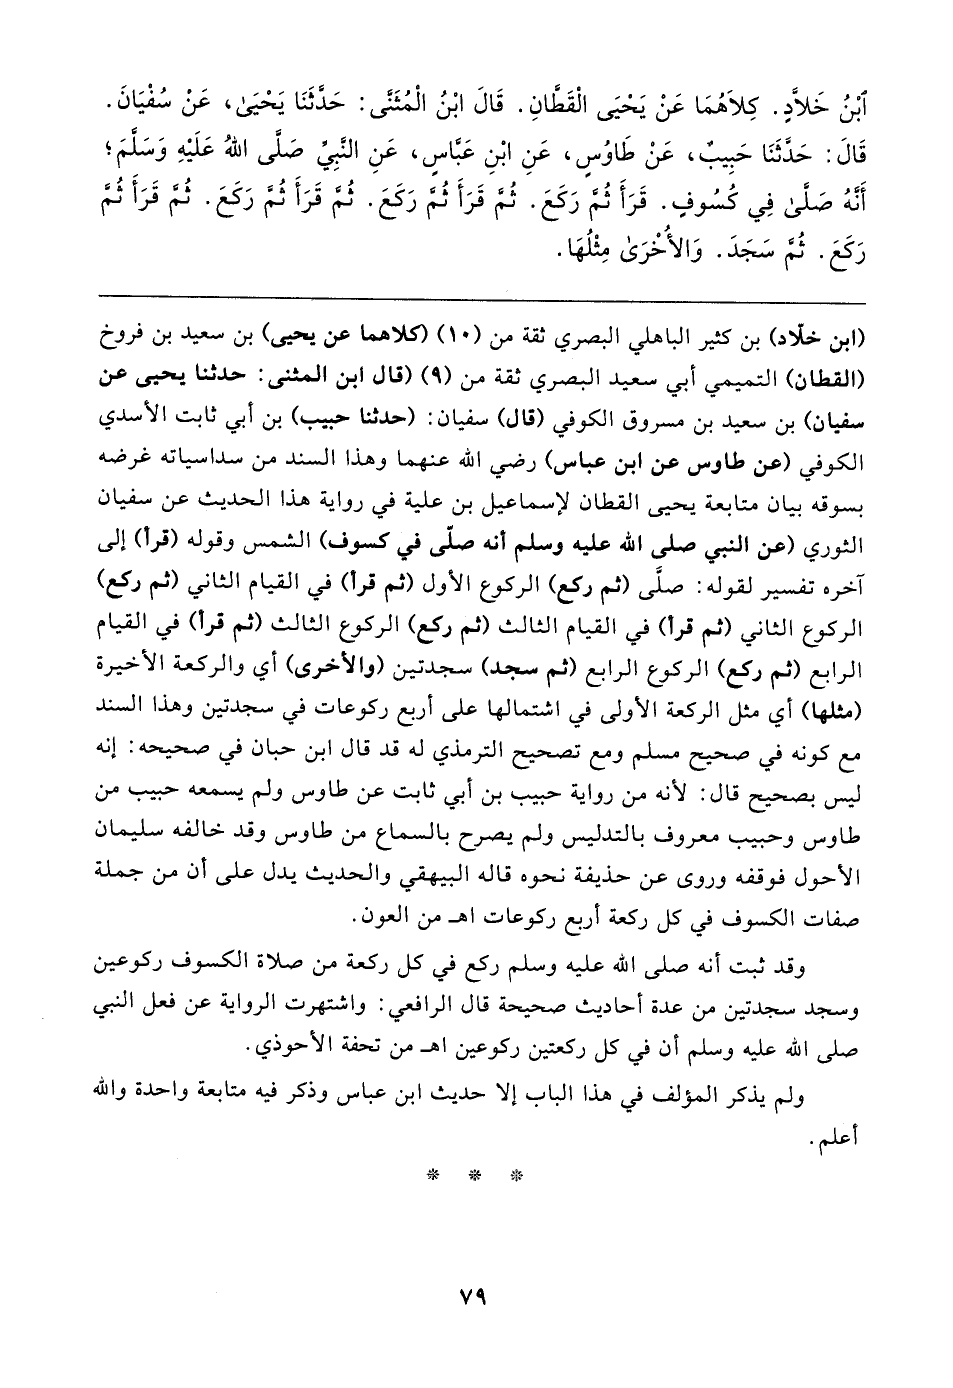 ٱبْنُ خَلَّادٍ. كِلَاهُمَا عَنْ يَحْيَى الْقَطَّانِ. قَالَ ابْنُ الْمُثَنَّى: حَدَّثَنَا يَحْيَىٰ، عَنْ سُفْيَانَ.
قَالَ: حَدَّثَنَا حَبِيبٌ، عَنْ طَاوُسٍ، عَنِ ابْنِ عَبَّاسٍ، عَنِ النَّبِيِّ صَلَّى اللهُ عَلَيْهِ وَسَلَّمَ؛
أَنَّهُ صَلَّىٰ فِي كُسُوفٍ. قَرَأَ ثُمَّ رَكَعَ. ثُمَّ قَرَأَ ثُمَّ رَكَعَ. ثُمَّ قَرَأَ ثُمَّ رَكَعَ. ثُمَّ قَرَأَ ثُمَّ
رَكَعَ. ثُمَّ سَجَدَ. وَالأُخْرَىٰ مِثْلُهَا.
(ابن خلّاد) بن كثير الباهلي البصري ثقة من (١٠) (كلاهما عن يحيى) بن سعيد بن فروخ
(القطان) التميمي أبي سعيد البصري ثقة من (٩) (قال ابن المثنى: حدثنا يحيى عن
سفيان) بن سعيد بن مسروق الكوفي (قال) سفيان: (حدثنا حبيب) بن أبي ثابت الأسدي
الكوفي (عن طاوس عن ابن عباس) رضي الله عنهما وهذا السند من سداسياته غرضه
بسوقه بيان متابعة يحيى القطان لإسماعيل بن علية في رواية هذا الحديث عن سفيان
الثوري (عن النبي صلى الله عليه وسلم أنه صلّى في كسوف) الشمس وقوله (قرأ) إلى
آخره تفسير لقوله: صلَّى (ثم ركع) الركوع الأول (ثم قرأ) في القيام الثاني (ثم ركع)
الركوع الثاني (ثم قرأ) في القيام الثالث (ثم ركع) الركوع الثالث (ثم قرأ) في القيام
الرابع (ثم ركع) الركوع الرابع (ثم سجد) سجدتين (والأخرى) أي والركعة الأخيرة
(مثلها) أي مثل الركعة الأولى في اشتمالها على أربع ركوعات في سجدتين وهذا السند
مع كونه في صحيح مسلم ومع تصحيح الترمذي له قد قال ابن حبان في صحيحه: إنه
ليس بصحيح قال: لأنه من رواية حبيب بن أبي ثابت عن طاوس ولم يسمعه حبيب من
طاوس وحبيب معروف بالتدليس ولم يصرح بالسماع من طاوس وقد خالفه سليمان
الأحول فوقفه وروى عن حذيفة نحوه قاله البيهقي والحديث يدل على أن من جملة
صفات الكسوف في كل ركعة أربع ركوعات اهـ من العون.
وقد ثبت أنه صلى الله عليه وسلم ركع في كل ركعة من صلاة الكسوف ركوعين
وسجد سجدتين من عدة أحاديث صحيحة قال الرافعي: واشتهرت الرواية عن فعل النبي
صلى الله عليه وسلم أن في كل ركعتين ركوعين اهـ من تحفة الأحوذي.
ولم يذكر المؤلف في هذا الباب إلا حديث ابن عباس وذكر فيه متابعة واحدة والله
أعلم.
* * *
٧٩